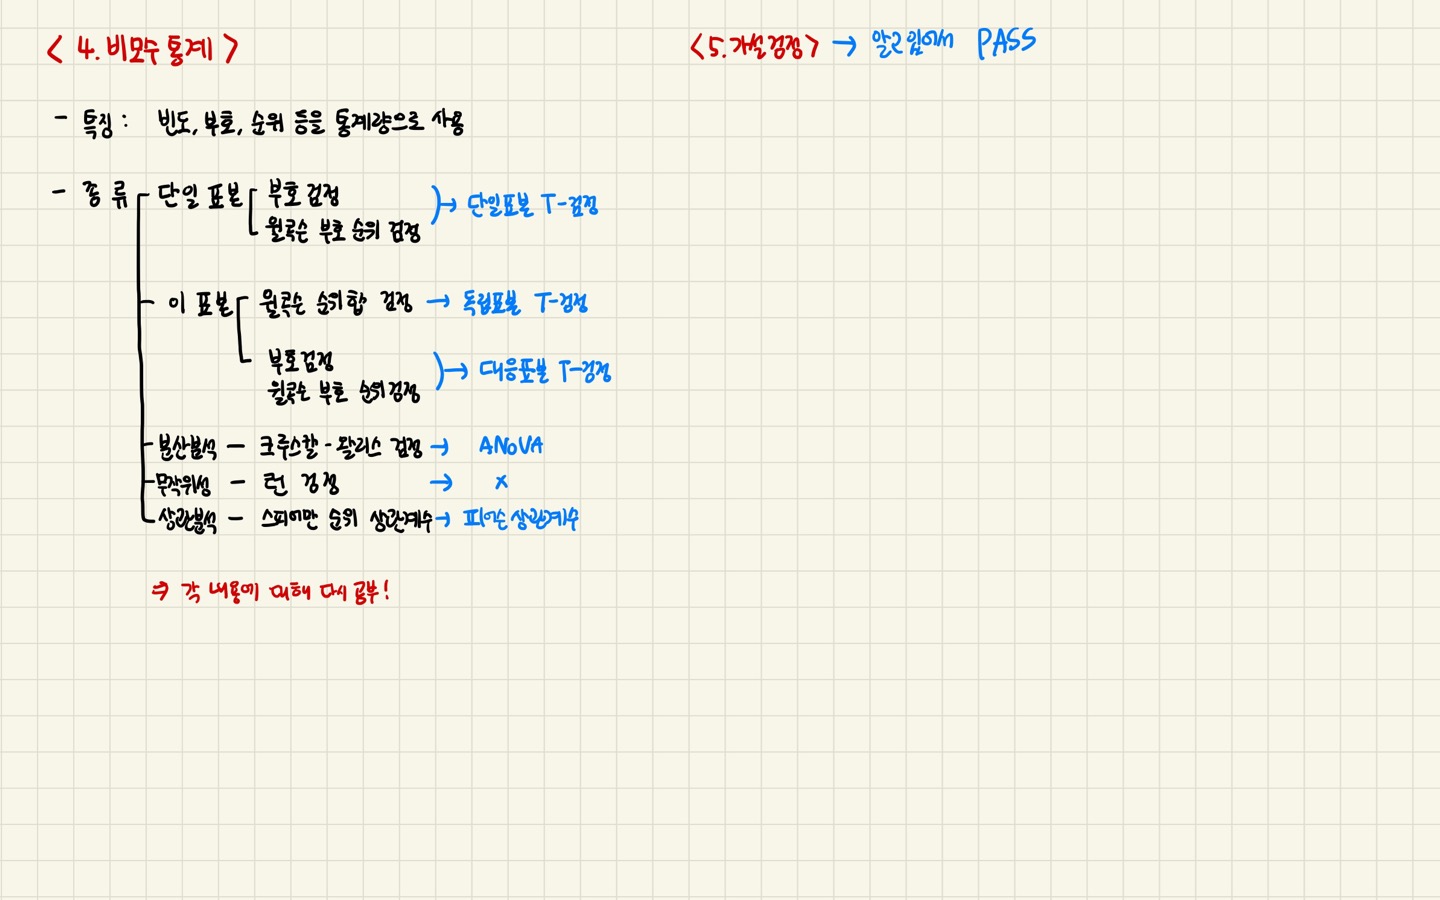 < 4. 비모수 통계 >
- 특징 : 빈도, 부호, 순위 등을 통계량으로 사용
- 종류 단일 표본 부호 검정
윌콕슨 부호 순위 검정 → 단일표본 T-검정
이 표본 윌콕슨 순위합 검정 → 독립표본 T-검정
부호검정
윌콕슨 부호 순위검정 → 대응표본 T-검정
분산분석 - 크루스칼-왈리스 검정 → ANOVA
무작위성 - 런 검정 → x
상관분석 - 스피어만 순위 상관계수 → 피어슨 상관계수
⇒ 각 내용에 대해 다시 공부!
<5. 가설검정> → 알고 있어서 PASS